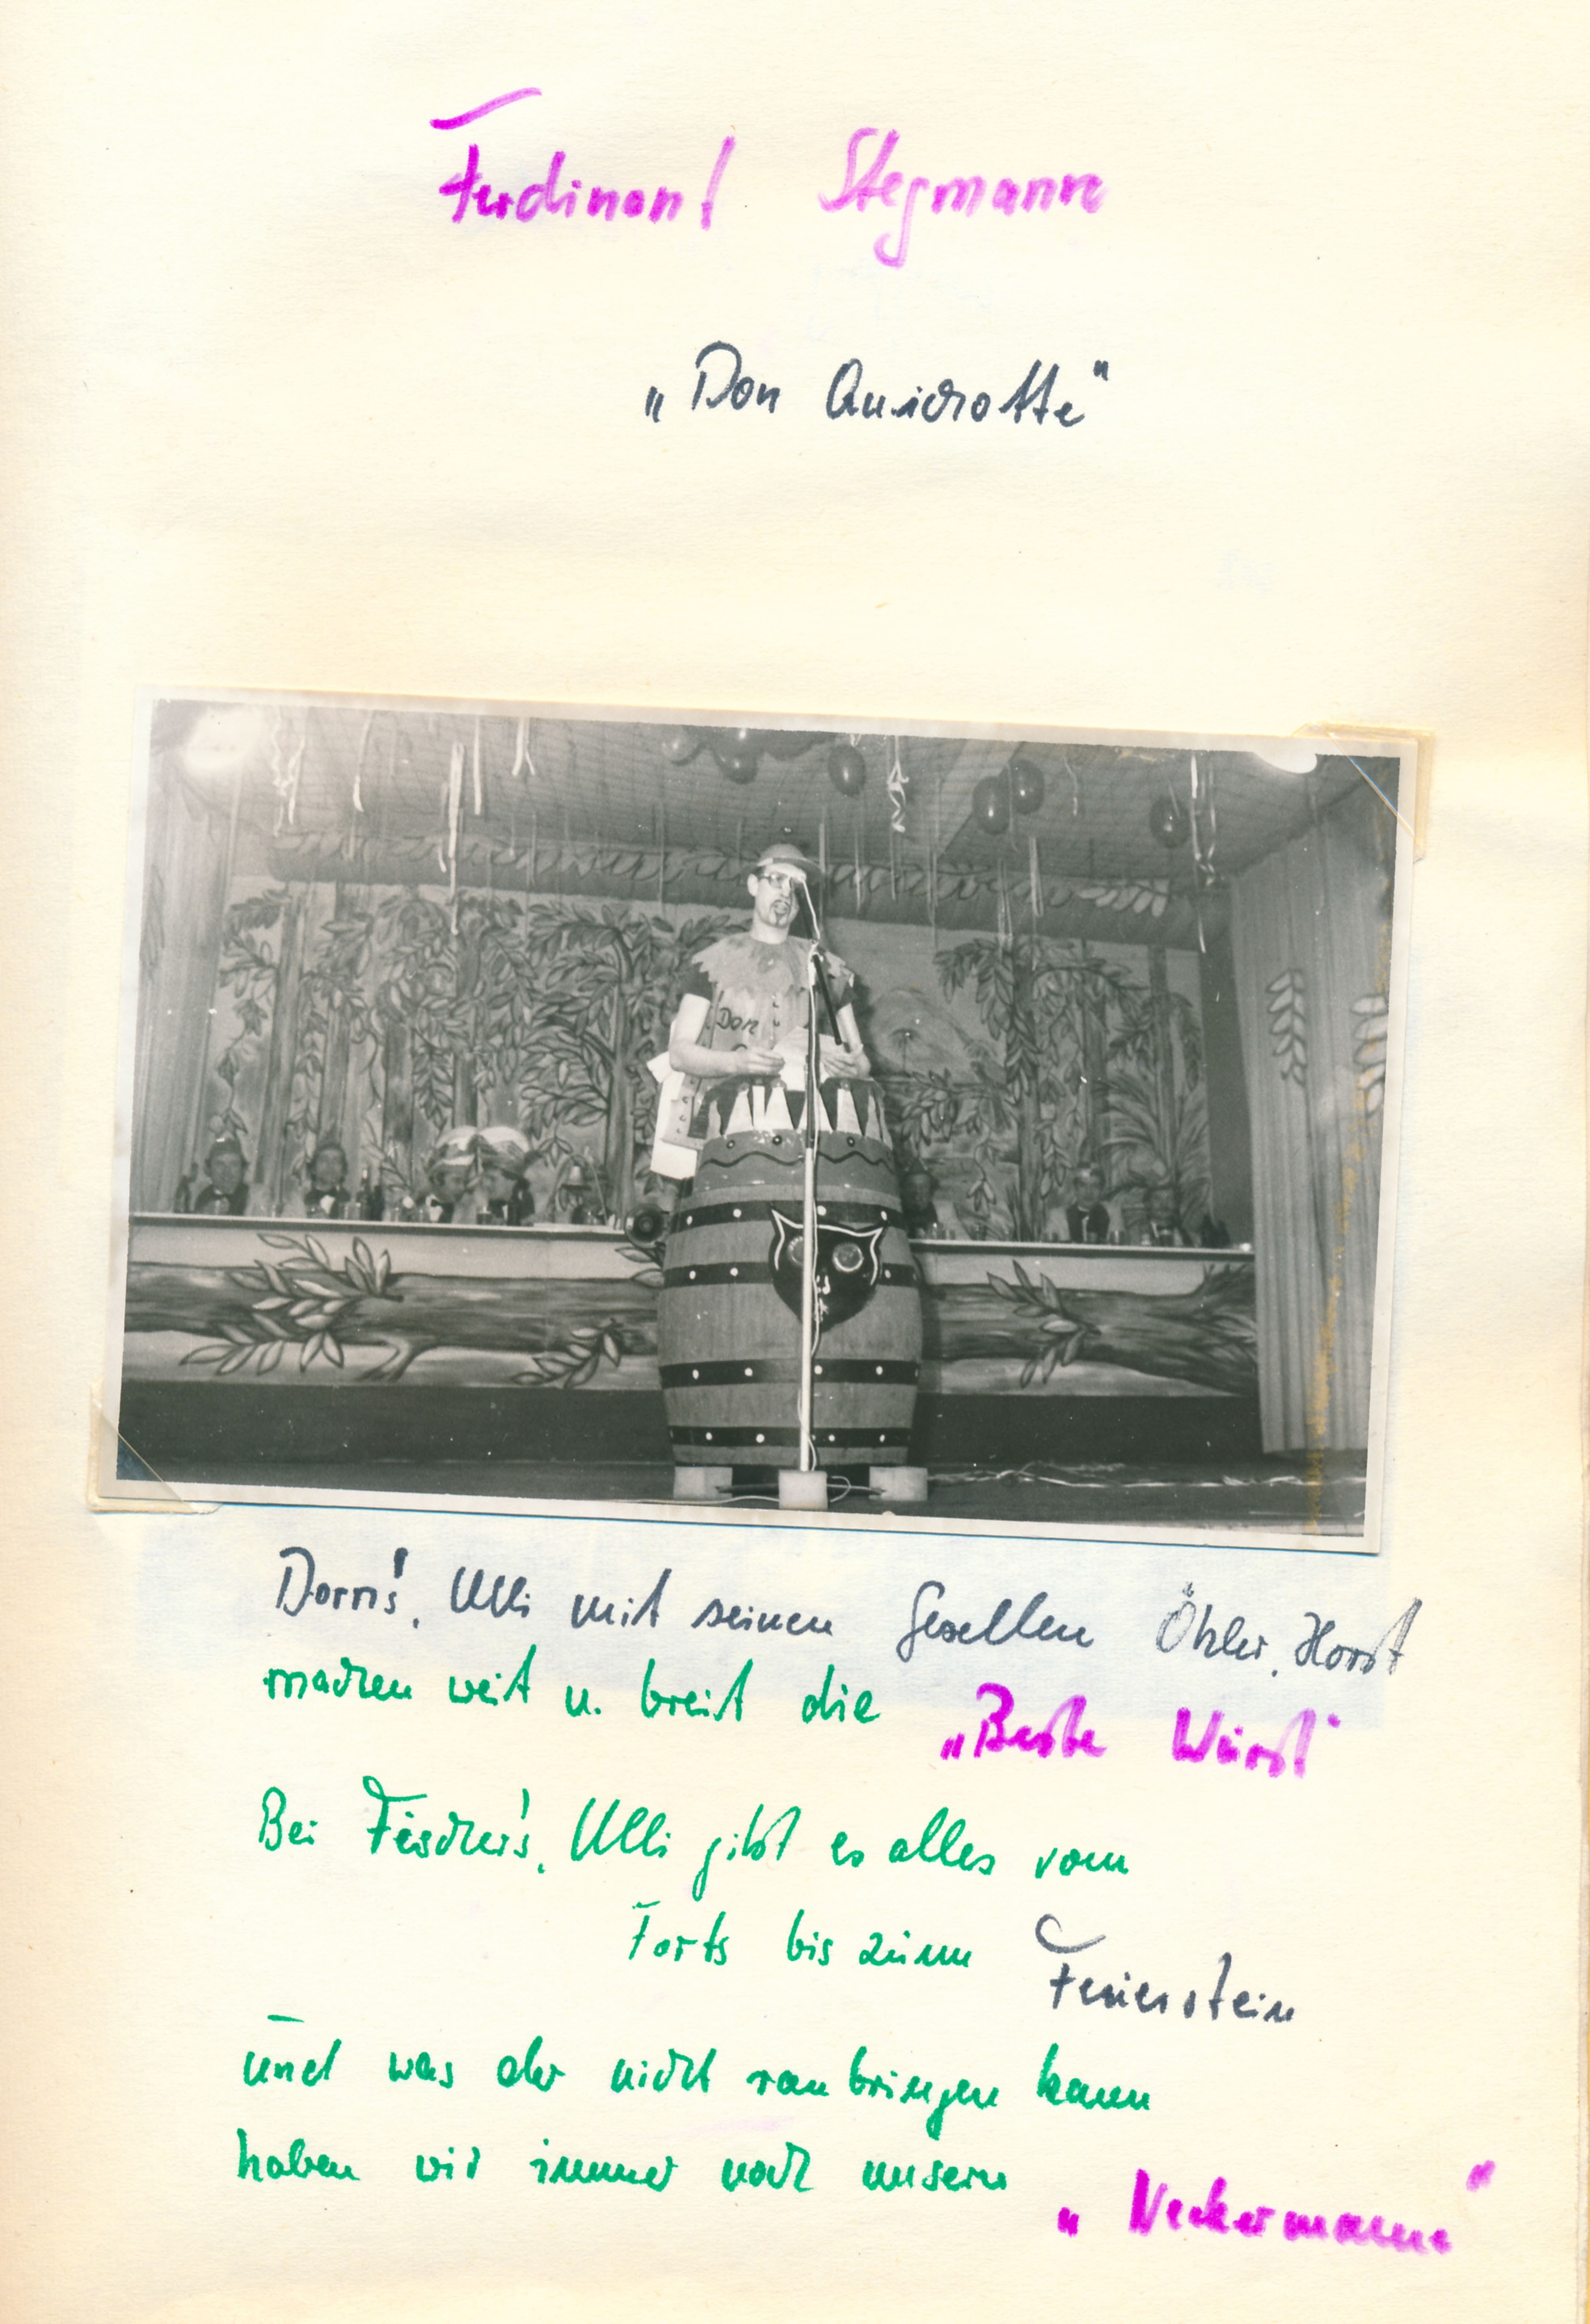 Ferdinand Stegmann
„Don Quichotte"
Don
Dorni's, Ulli mit seinen Gesellen Öhler, Horst
machen weit u. breit die „Beste Wurst"
Bei Fischer's, Ulli gibt es alles vom
Forts bis zum Feuerstein
und was der nicht ranbringen kann
haben wir immer noch unsern „Neckermann"